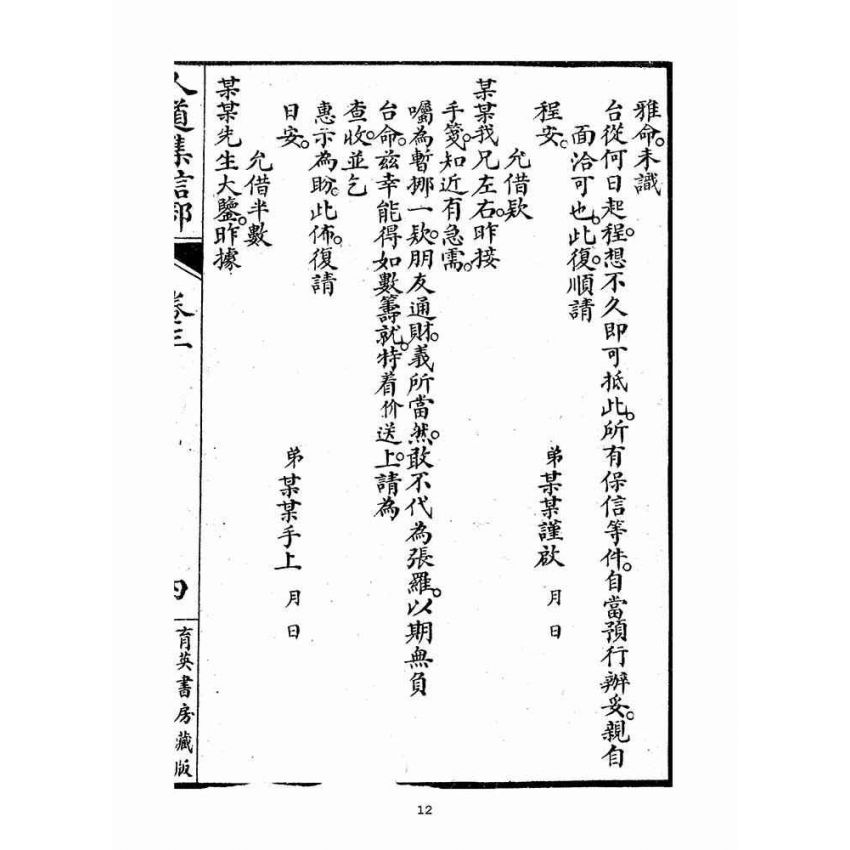 雅命。未識
台從何日起程。想不久即可抵此。所有保信等件。自當預行辦妥。親自
面洽可也。此復。順請
程安。
弟某某謹啟 月 日
允借欵
某某我兄左右。昨接
手箋。知近有急需。
囑為暫挪一欵。朋友通財。義所當然。敢不代為張羅。以期無負
台命。茲幸能得如數籌就。特着价送上。請為
查收。並乞
惠示為盼。此佈。復請
日安。
弟某某手上 月 日
允借半數
某某先生大鑒。昨據
人道集信部
卷三
四
育英書房藏版
12